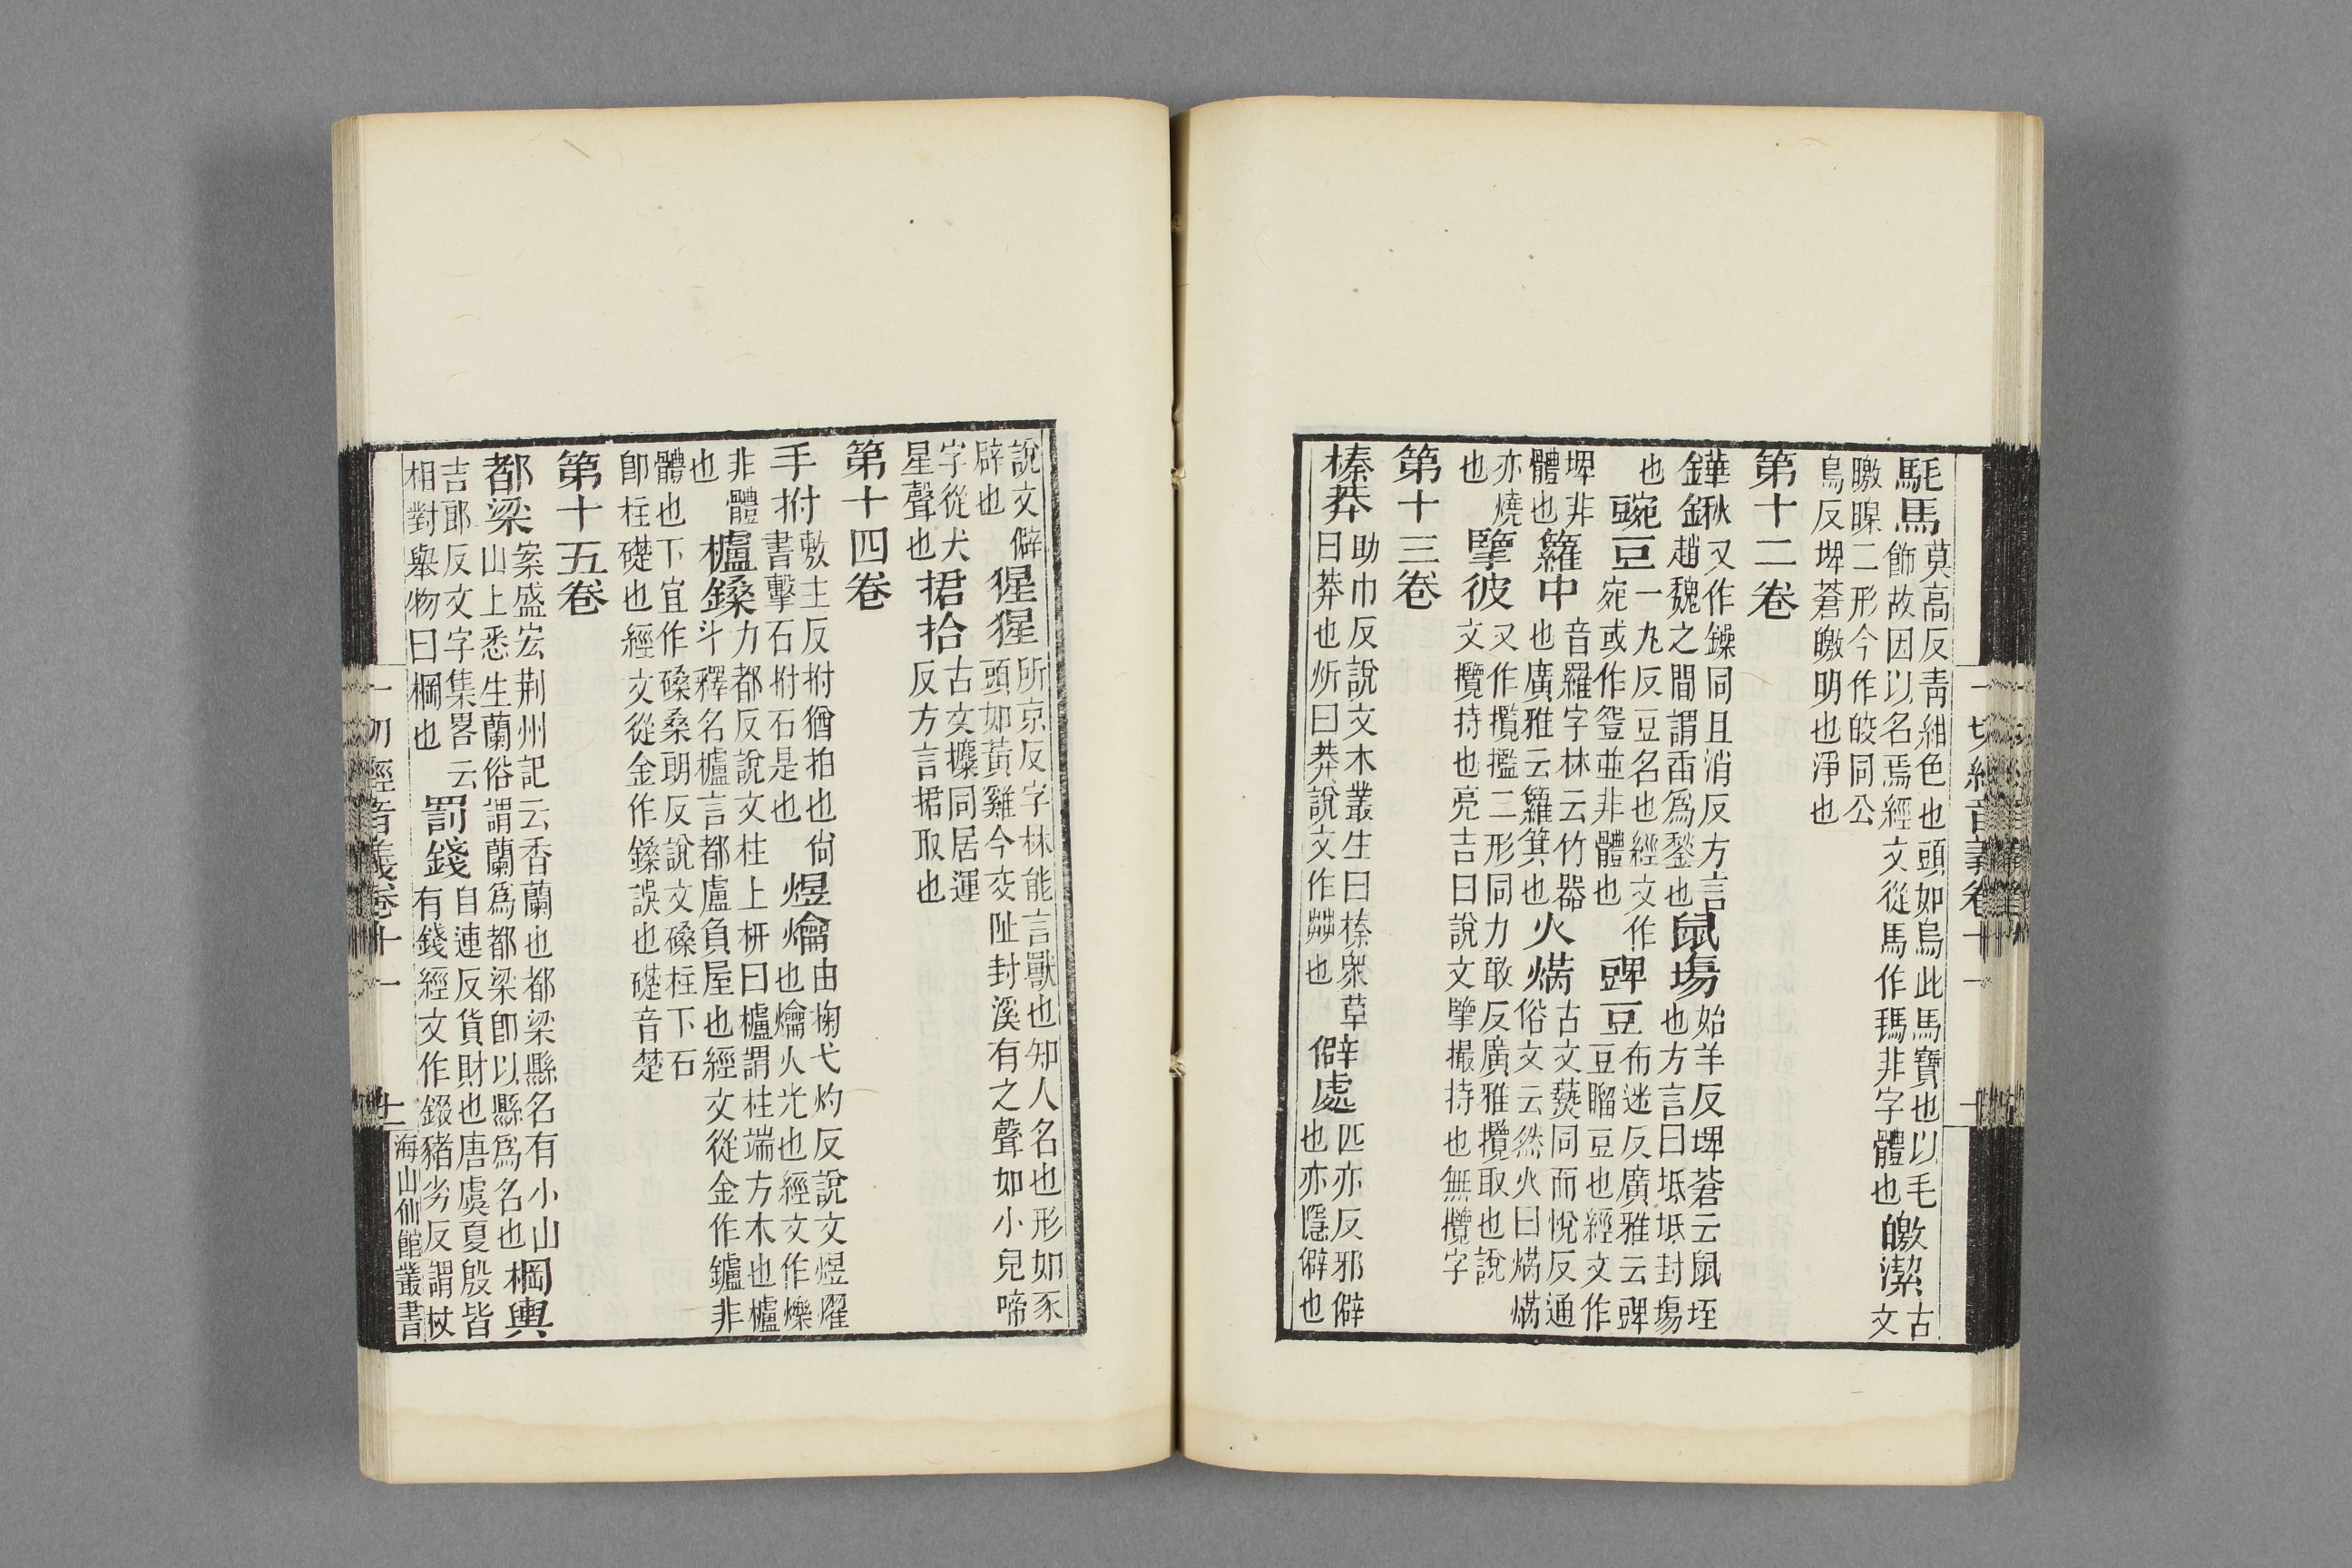 髦馬莫高反青紺色也頭如烏此馬寶也以毛
飾故因以名焉經文從馬作㺺非字體也皦潔古文
曒㬤二形今作皎同公
鳥反埤蒼皦明也淨也
第十二卷
鏵鍬又作鐰同且消反方言
趙魏之間謂臿爲鍫也鼠塲始羊反埤蒼云鼠垤
也方言曰坻坻封塲
也䝹豆一丸反豆名也經文作
宛或作登並非體也䜾豆布迷反廣雅云䜾
豆䝀豆也經文作
埤非
體也籮中音羅字林云竹器
也廣雅云籮箕也火焫古文爇同而悅反通
俗文云然火曰焫焫
亦燒
也擥彼又作擥㩜二形同力敢反廣雅攬取也說
文攬持也亮吉曰說文擥撮持也無攬字
第十三卷
榛莽助巾反說文木叢生曰榛衆草
曰莽也炘曰莽說文作茻也僻處匹亦反邪僻
也亦隱僻也
說文僻
辟也猩猩所京反字林能言獸也知人名也形如豕
頭如黃雞今交阯封溪有之聲如小兒啼
字從犬
星聲也捃拾古文攈同居運
反方言捃取也
第十四卷
手拊敷主反拊猶拍也尙
書擊石拊石是也煜爚由掬弋灼反說文煜燿
也爚火光也經文作爍
非體
也櫨鎟力都反說文柱上枅曰櫨謂柱端方木也櫨
斗釋名櫨言都盧負屋也經文從金作鑪非
體也下宜作磉桑朗反說文磉柱下石
卽柱礎也經文從金作鎟誤也礎音楚
第十五卷
都梁案盛宏荆州記云香蘭也都梁縣名有小山
山上悉生蘭俗謂蘭爲都梁卽以縣爲名也棡轝
吉耶反文字集畧云
相對舉物曰棡也罰錢自連反貨財也唐虞夏殷皆
有錢經文作錣豬劣反謂杖
一切經音義卷十一
十一
海山仙館叢書